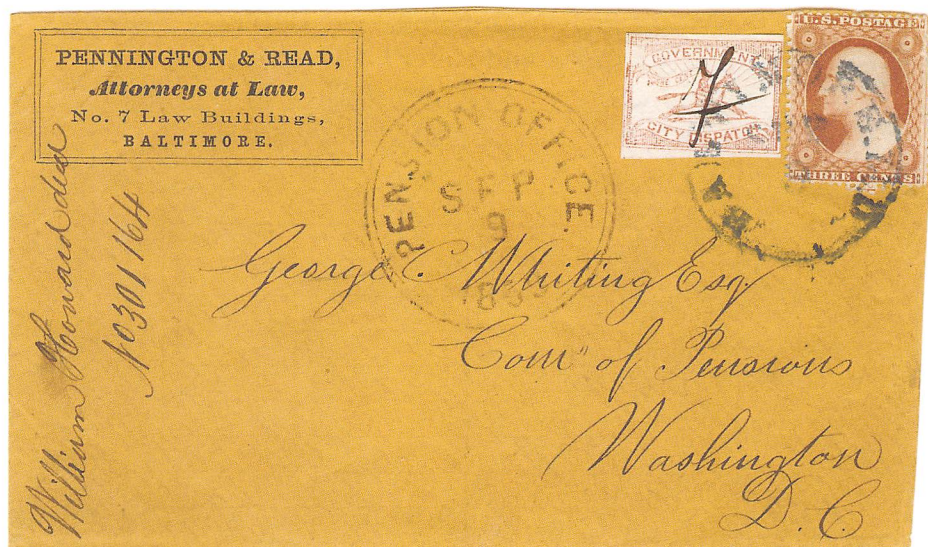 PENNINGTON & READ,
Attorneys at Law,
No. 7 Law Buildings,
BALTIMORE.
GOVERNMENT
CITY DISPATCH
7
U.S. POSTAGE
THREE CENTS
PENSION OFFICE
SEP
9
George C. Whiting Esq.
Com'r of Pensions
Washington
D.C.
William Howard decd
No 301164